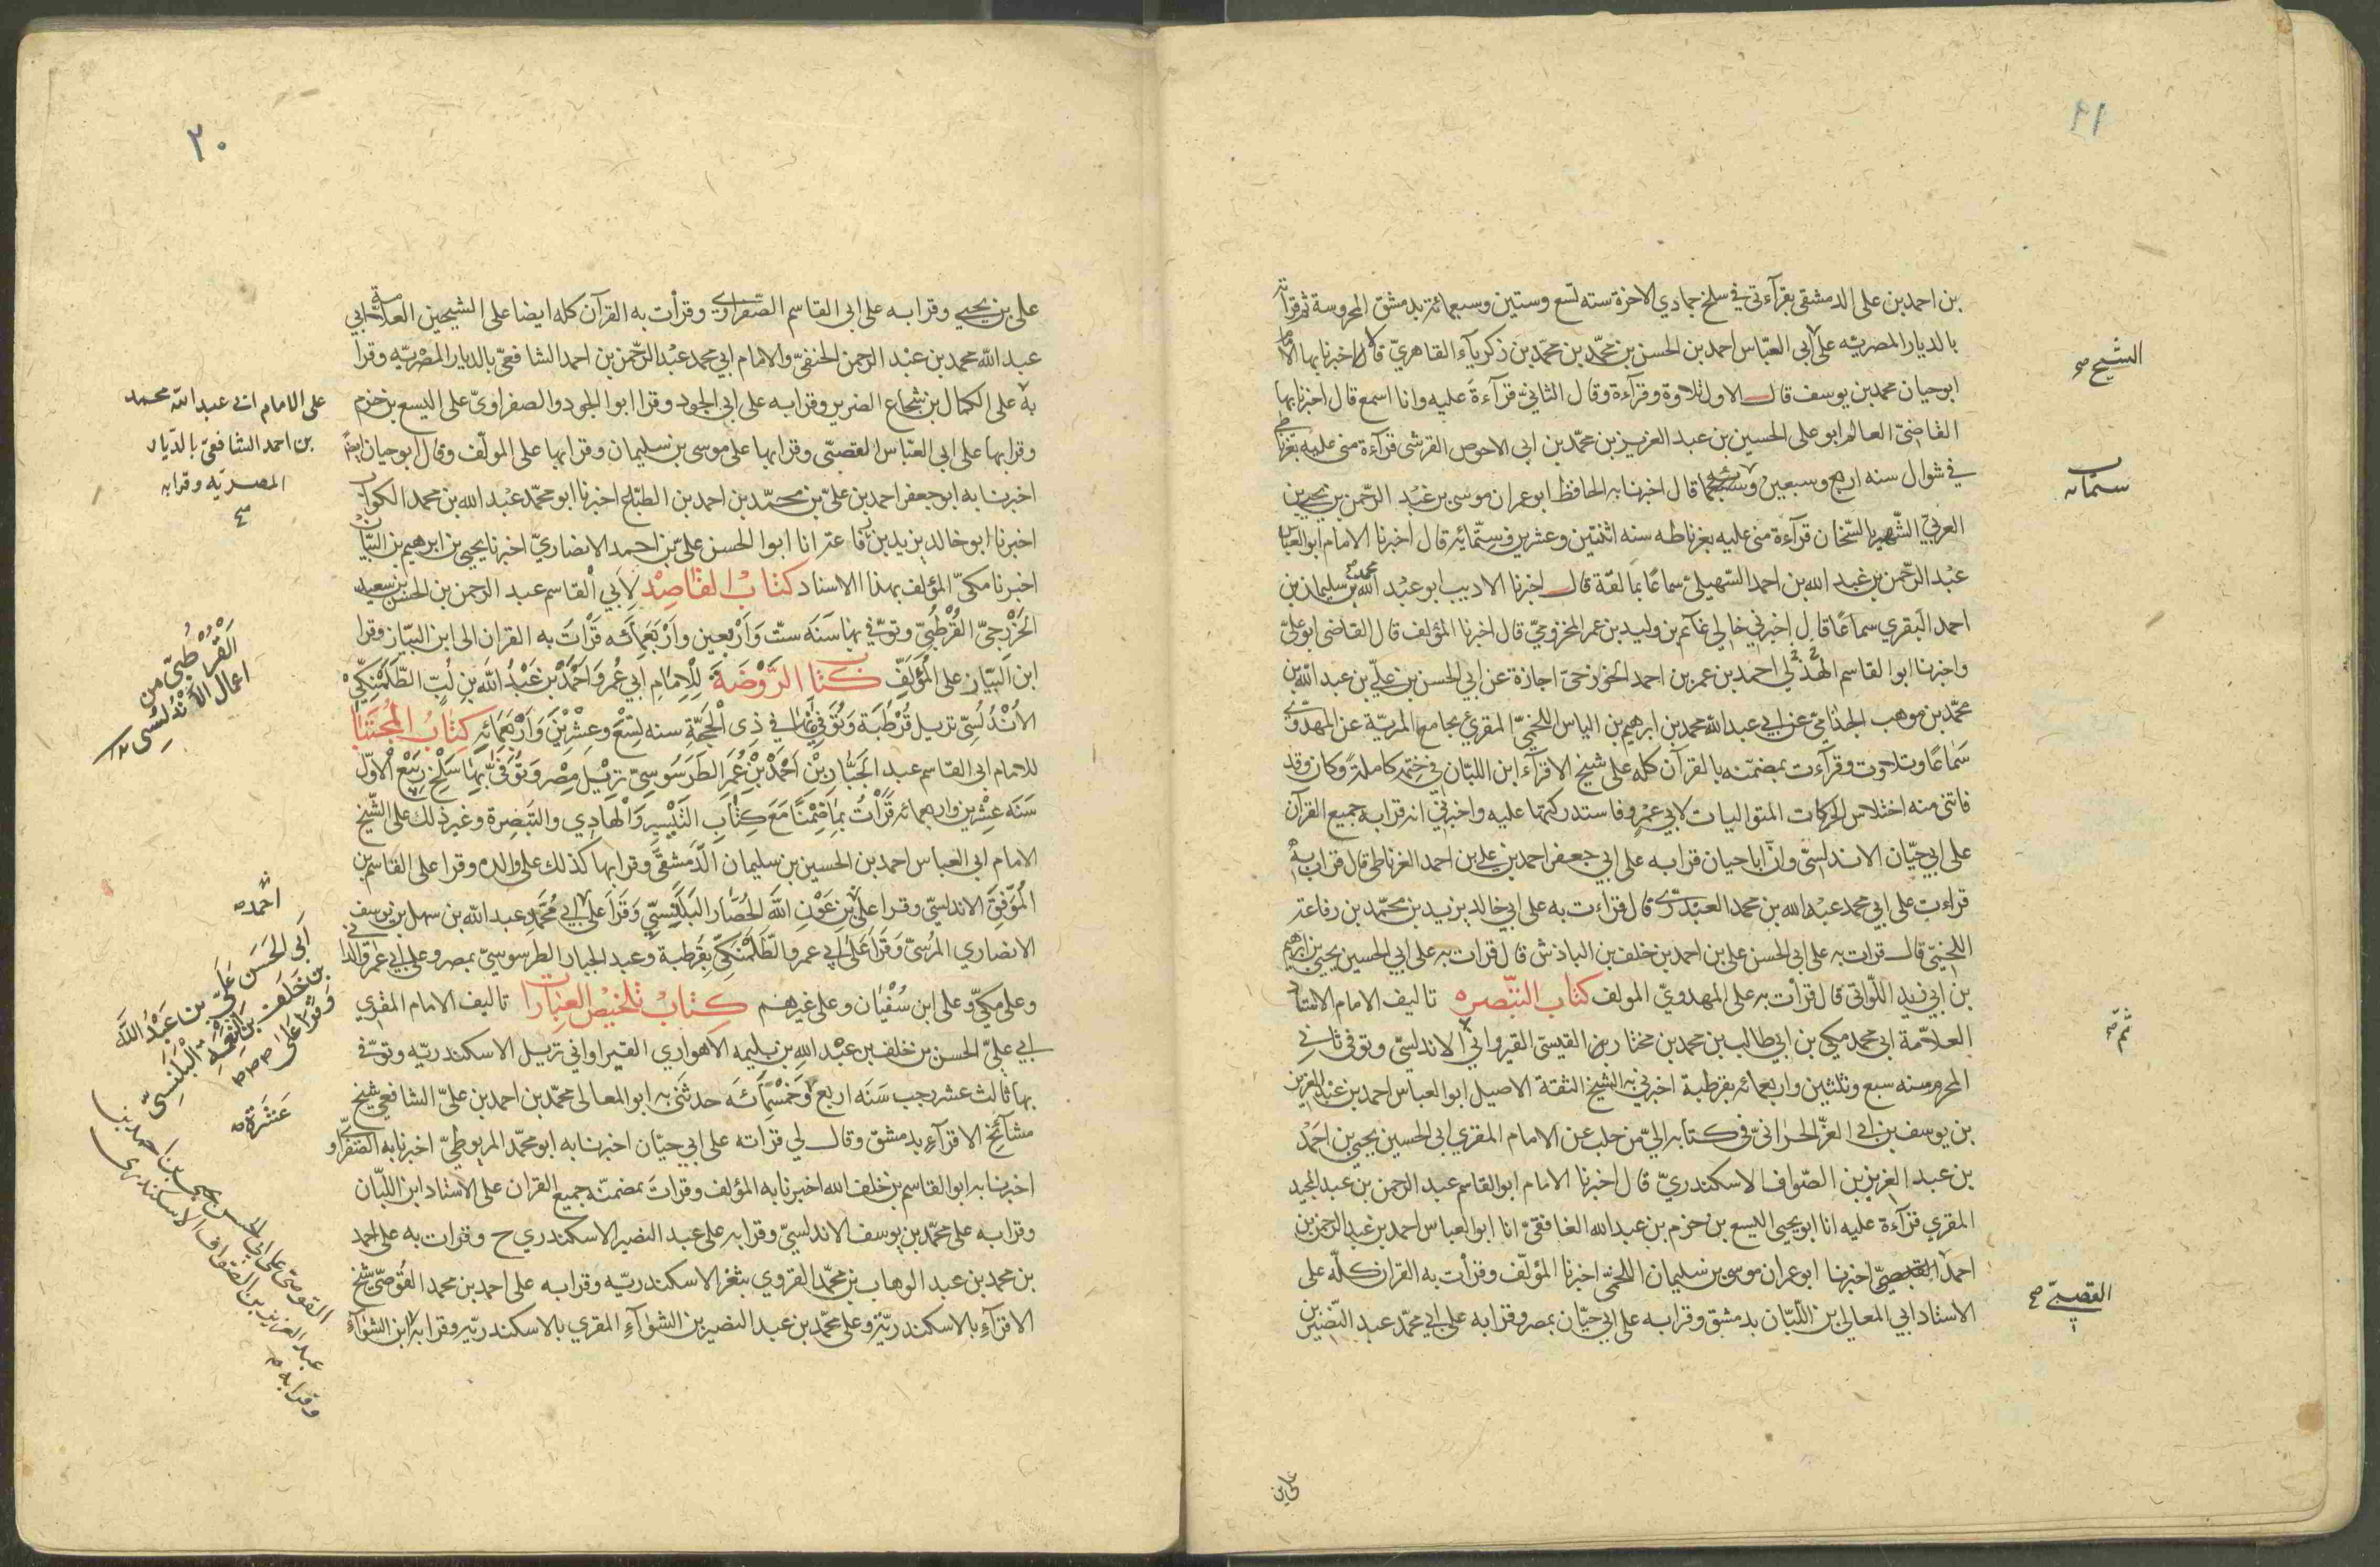 بن احمد بن على الدمشقى بقرآءتى فى سلخ جمادي الاخرة سنه تسع وستين وسبعمائة بدمشق المحروسة ثم قرأته
بالديار المصريّه على ابى العبّاس احمد بن الحسن بن محمّد بن محمّد بن زكريآء القاهريّ قالا اخبرنا بها الامام
الشيخ صح
ابو حيان محمد بن يوسف قال الاول تلاوة وقرآءة وقال الثانيّ قرآءةً عليه وانا اسمع قال اخبرنا بها
القاضيّ العالم ابو على الحسين بن عبد العزيز بن محمّد بن ابي الاحوص القرشى قرآءة منى عليه بغرناطه
فى شوال سنه اربع وسبعين قال اخبرنا به الحافظ ابو عمران موسى بن عبد الرّحمن بن يحيى بن
ستمائه
العربيّ الشّهير بالسّخان قرآءة منى عليه بغرناطه سنه اثنتين وعشرين وستّمائه قال اخبرنا الامام ابو العباس
عبْد الرّحمن بن عبد الله بن احمد السّهيليّ سماعًا بمالقة قال اخبرنا الاديب ابو عبْد الله محمد بن سليمان بن
احمد النقري سماعًا قال اخبرني خالي غآنم بن وليد بن عمر المخزوميّ قال اخبرنا المؤلف قال القاضى ابو علىّ
واخبرنا ابو القاسم الهذلى احمد بن عمر بن احمد الخزرجىّ اجازة عن ابي الحسن بن علىّ بن عبد الله بن
محمّد بن موهب الجذامىّ عن ابي عبد الله محمد بن ابرهيم بن الياس اللخمىّ المقرئ بجامع المريّة عن المهدوى
سَماعًا وتلاوت وقرآءت بمضمّنه بالقرآن كله على شيخ الاقرآء ابن اللبّان فى ختمه كاملة وكان وقد
فاتنى منه اختلاس الحركات المتواليات لابي عمرٍو فاستدركتها عليه واخبرنى انه قرا به جميع القرآن
على ابى حيّان الاندلسىّ وانّ ابا حيان قرا به على ابى جعفر احمد بن على بن احمد الغرناطى قال قرات به
قراءت على ابي محمد عبْد الله بن محمد العبْدرىّ قال قراءت به على ابي خالد يزيد بن محمّد بن رفاعة
اللخمىّ قال قرات به على ابى الحسن على بن احمد بن خلف بن الباذش قال قرات به على ابي الحسين يحيى بن ابرهيم
بن ابي زيد اللّواتى قال قرأت به على المهدويّ المولف كتاب التبْصره تاليف الامام الاستاد
العلاّمة ابى محمد مكي بن ابي طالب بن محمد بن مختار القيسى القيرواني الاندلسىّ وتوفى ثانى
ثم صح
المحرم سنه سبع وثلثين واربعمائه بقرطبة اخبرنى به الشيخ الثقة الاصيل ابو العباس احمد بن عبْد العزيز
بن يوسف بن ابى العزّ الحرانىّ فى كتابه الىّ من حلب عن الامام المقري ابى الحسين يحيى بن احمَد
بن عبد العزيز بن الصّواف الاسكندريّ قال اخبرنا الامام ابو القاسم عبد الرحمن بن عبد المجيد
المقري قرآءة عليه انا ابو يحيى اليسع بن حزم بن عبد الله الغافقىّ انا ابو العباس احمد بن عبد الرحمن بن
احمد القصبىّ اخبرنا ابو عمران موسى بن سليمان اللخمىّ اخبرنا المؤلّف وقرأت به القران كلّه على
القصبىّ صح
الاستاد ابي المعالى بن اللّبّان بدمشق وقرا به على ابي حيّان بمصر وقرا به على ابي محمّد عبد النّصير بن
على بن
٢٠
على بن يحيى وقرا به على ابى القاسم الصّفراوىّ وقرأت به القرآن كله ايضا على الشيخين العلامة ابي
عبد الله محمد بن عبْد الرحمن الحنفىّ والامام ابي محمد عبْد الرّحمن بن احمد الشافعىّ بالديار المصْريّه وقرا
به على الكمال بن شجاع الضرير وقرا به على ابى الجود وقرا ابو الجود والصفراوىّ على اليسع بن حزم
على الامام ابى عبد الله محمد
بن احمد الشافعىّ بالدّيار
المصريّه وقرا به
صح
وقرا بها على ابى العبّاس القصبىّ وقرا بها على موسى بن سليمان وقرا بها على المولّف وقال ابو حيان ايضًا
اخبرنا به ابو جعفر احمد بن علىّ بن محمّد بن احمد بن الطبّاع اخبرنا ابو محمّد عبْد الله بن محمد الكواب
اخبرنا ابو خالد يزيد بن رفاعة انا ابو الحسن علىّ بن احمد الانصاريّ اخبرنا يحيى بن ابرهيم بن البيّان
اخبرنا مكىّ المؤلف بهذا الاسناد كتاب القاصِدْ لأبي القاسم عبد الرحمن بن الحسن بن سعيد
الخزْرجىّ القُرْطُبىّ وتوفّى بها سَنَه ستّ وَاَرْبعين وَاَرْبَعمائه قَرْأتَ به القران الى ابن البيّان وقرا
القُرْطُبىّ من
اعمال الأنْدلُسى
ابن البيّان على المُؤلّفِ كتاب الرَّوْضَة لِلْاِمَامِ ابي عُمر وَاحْمَدْ بْن عَبْدُ الله بْنِ لُبّ الطَّلَمَنْكِىّ
الأنْدُلُسِىّ نزيل قُرْطُبَة وَتُوَفِّى بِهَا فى ذِى الْحَجّةِ سنه تِسْعَ وعِشْرِيْنَ وَاَرْبَعَمائه كِتابُ المُجْتَبَا
للامام ابى القاسم عبد الجَبَّارِ بْنِ اَحْمَدْ بْنِ عُمَر الطَرَسُوسِىّ نزيْل مِصْر وَتُوَفّى بِهَا سَلْخ رَبِيْع الْاَوّل
سَنَه عِشْرين واربعمائه قَرأْتُ بمَا ضمْنَا مَعَ كِتَابِ التَيْسِيرِ وَالْهَادِي والتَبْصِرة وغير ذلك على الشّيْخ
الامام ابى العباس احمد بن الحسين بن سليمان الدّمَشقىّ وقرا بها كذلك على والده وقرا على القاسم بن
المُوَفّقَ الاندلسىّ وقرا على بن عَوْنِ الله الحَصَّار البَلَنْسِىّ وَقَرَأ على ابي مُحَمّدٍ عبد الله بن سهل بن يوسف
احمد صح
الانصاري المُرسىّ وَقَرَا عَلى ابى عمرو الطَّلَمَنْكىّ بِقُرطبة وعبد الجبار الطرسوسىّ بمصر وعلى ابى عمرو الدانى
ابى الحَسَن عَلىّ بن عَبْدُ الله
بن خَلَف بن نِعْمَة البَلَنسِىّ
وَقرا عَلى
وعلى مكىّ وعلى ابن سُفْيَان وعلى غيرهم كتابُ تلخيْص العِبَارات تاليف الامام المقري
ابي علىّ الحسن بن خلف بن عبْد الله بن بليمه الأهواري القيرواني نزيل الاسكندريّه وتوفّى
بها ثالث عشر رجب سَنَه اربعَ وَخَمْسْمائَه حدثنى به ابو المعالى محمّد بن احمد بن علىّ الشافعى شيخ
عَشَرة صح
مشائخ الاقرآء بدمشق وقال لي قراته على ابي حيّان اخبرنا به ابو محمّد المربوطىّ اخبرنا به الصّفراوى
اخبرنا به ابو القاسم بن خلف الله اخبرنا به المؤلف وقراتَ بمضمّنه جميع القران على الاستاد ابن اللبّان
وقرا به على محمّد بن يوسف الاندلسىّ وقرا به على عبد النصير الاسكندري ح وقرات به على احمد
بن محمد بن عبد الوهاب بن محمّد القروي بثغر الاسكندريّه وقرا به على احمد بن محمد القُوصّى شيخ
الاقرآء بالاسكندريّة وعلى محمّد بن عبد النصير بن الشوآء المقري بالاسكندريّه وقرا به ابن الشوآء
القوصّى على ابي الحسن يحيى بن احمد بن
عبد العزيز بن الصّواف الاسكندرى
وقرا به صح